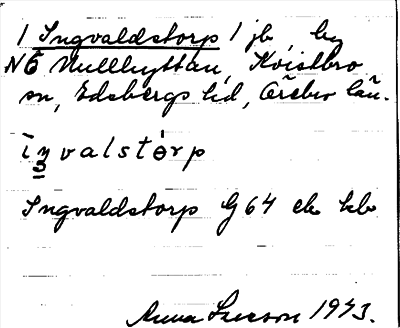 1 Ingvaldstorp 1 jb, by
NÖ Mullhyttan, Kvistbro
sn, Edsbergs hd, Örebro län.
ìŋvalstɵ̀rp
Ingvaldstorp G 64 ek kb
Anna 1943.